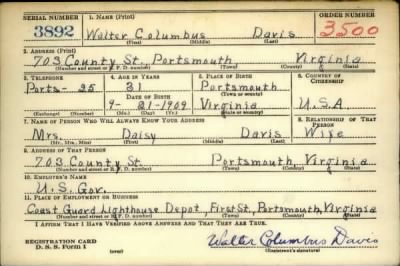 SERIAL NUMBER 1. NAME (Print) ORDER NUMBER
3892 Walter Columbus Davis 3500
(First) (Middle) (Last)
2. ADDRESS (Print)
703 County St., Portsmouth Virginia
(Number and street or R. F. D. number) (Town) (County) (State)
3. TELEPHONE 4. AGE IN YEARS 5. PLACE OF BIRTH 6. COUNTRY OF CITIZENSHIP
Ports-25 31 Portsmouth
DATE OF BIRTH (Town or county)
9-21-1909 Virginia U.S.A.
(Exchange) (No.) (Mo.) (Day) (Yr.) (State or country)
7. NAME OF PERSON WHO WILL ALWAYS KNOW YOUR ADDRESS 8. RELATIONSHIP OF THAT PERSON
Mrs. Daisy Davis Wife
(Mr., Mrs., Miss) (First) (Middle) (Last)
9. ADDRESS OF THAT PERSON
703 County St. Portsmouth, Virginia
(Number and street or R. F. D. number) (Town) (County) (State)
10. EMPLOYER'S NAME
U.S. Gov.
11. PLACE OF EMPLOYMENT OR BUSINESS
Coast Guard Lighthouse Depot, First St., Portsmouth, Virginia
(Number and street or R. F. D. number) (Town) (County) (State)
I AFFIRM THAT I HAVE VERIFIED ABOVE ANSWERS AND THAT THEY ARE TRUE.
REGISTRATION CARD
D. S. S. Form 1 (over) Walter Columbus Davis
(Registrant's signature)